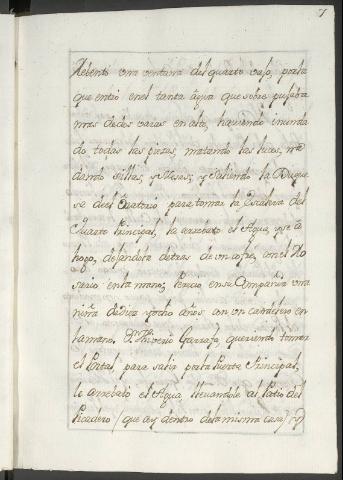 7
Rebentò una ventana del quarto vajo, por la
que entrò en el tanta agua que sobre pujaba
mas de dos varas en alto, haviendo inunda
do todas las piezas, matando las luces, ro
dando sillas, y Mesas, y Saliendo la Duque
sa del Oratorio para tomar la Escalera del
Quarto Principal, la arrebatò el Agua, y se a
hogò, dejandola detras de un cofre, con el Ro
sario en la mano; Pereciò en su Compañia una
niña de diez y ocho años, con un candelero en
la mano. Dn Tiverio Garrafa, queriendo tomar
el Portal para salir por la Puerta Principal,
le arrebatò el Agua llevandole al Patio del
Picadero (que ay dentro de la misma casa) y